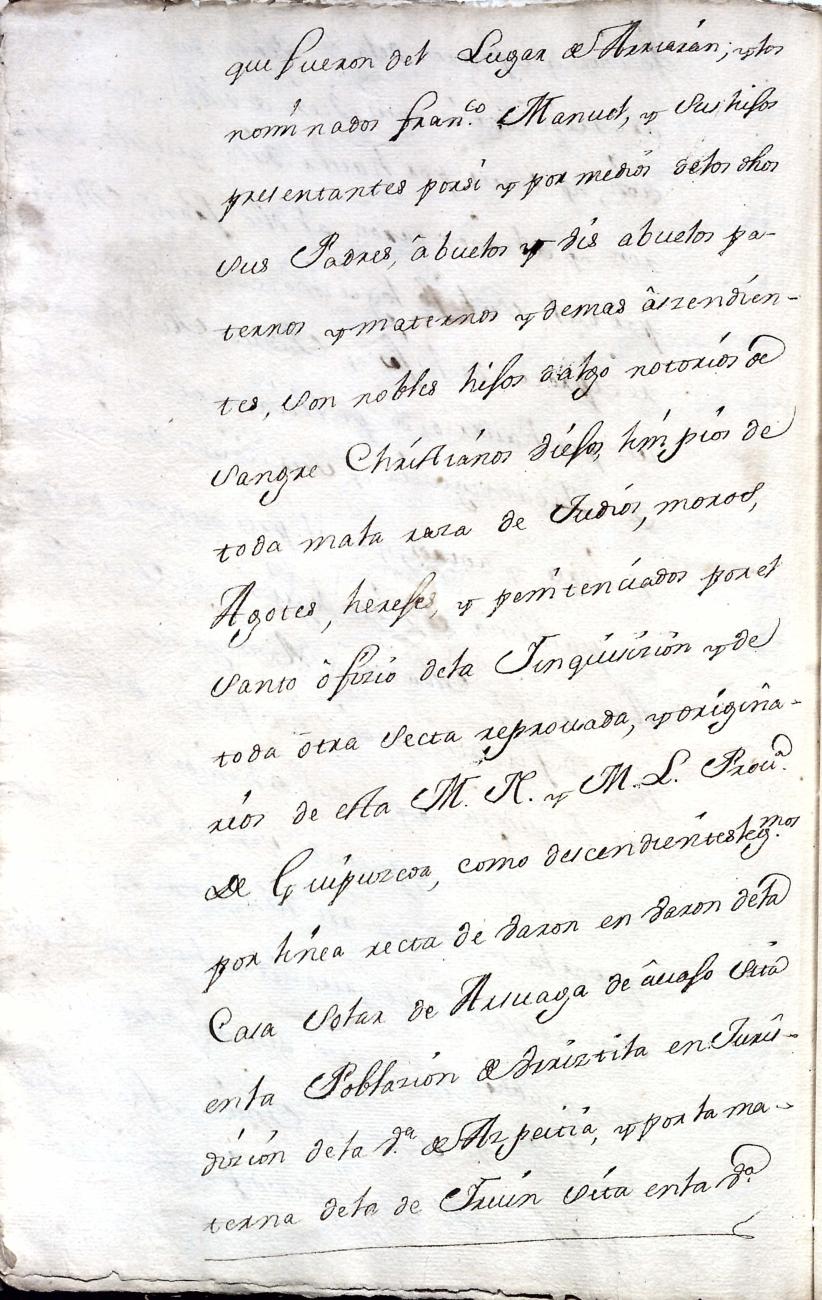 que fueron del Lugar de Arriarán; y los
nominados Fran.co Manuel, y sus hijos
presentantes porsi y por medios delos dhos
sus Padres, âbuelos y vis abuelos pa-
ternos y maternos y demas âszendien-
tes, son nobles hijos dalgo notorios de
sangre Christianos viejos, limpios de
toda mala raza de Judios, moros,
Agotes, herejes, y penitenciados por el
santo ôfizio dela Inquisizion y de
toda ôtra secta reprovada, y origina-
rios de esta M. N. y M. L. Prov.a
de Guipuzcoa, como descendientes leg.mos
por linea recta de varon en varon dela
Casa Solar de Arsuaga de âvajo sita
enla Poblazion de Vriztila en Juris-
dizion dela V.a de Azpeitia, y por la ma-
terna dela de Irvin sita enla V.a